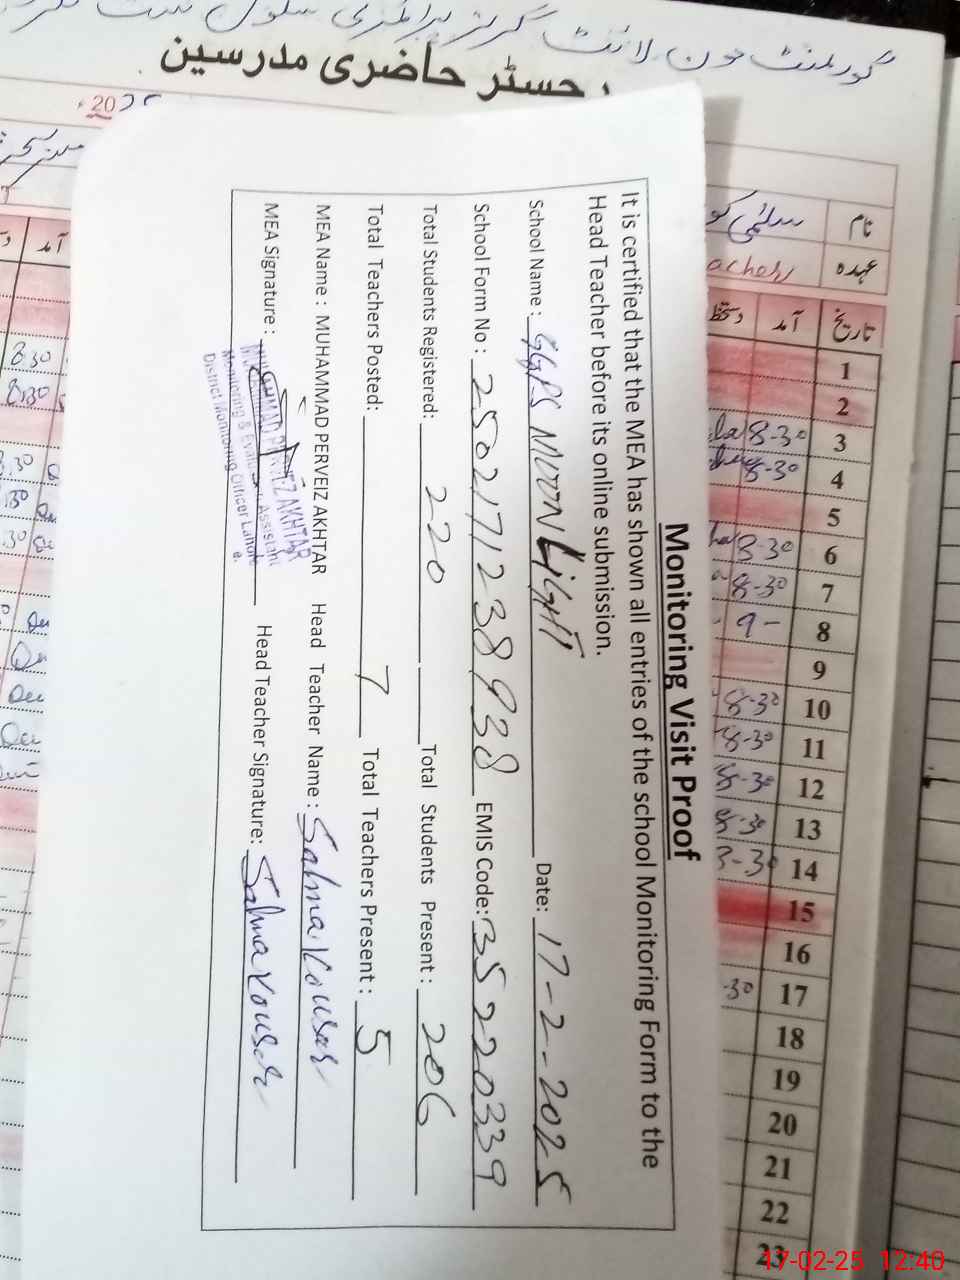 گورنمنٹ مون لائٹ گرلز پرائمری سکول
رجسٹر حاضری مدرسین
20
نام سلمیٰ کو
عہدہ acher
تاریخ آمد
1
2
3 8-30
4 8-30
5
6 8-30
7 8-30
8 9-
9
10 8-30
11 8-30
12 8-30
13 8-30
14 3-30
15
16
17 -30
18
19
20
21
22
23
آمد
8:30
8:30
Monitoring Visit Proof
It is certified that the MEA has shown all entries of the school Monitoring Form to the
Head Teacher before its online submission.
School Name : GGPS MOON LighT Date: 17-2-2025
School Form No : 2502171238938 EMIS Code: 35220339
Total Students Registered: 220 Total Students Present : 206
Total Teachers Posted: 7 Total Teachers Present : 5
MEA Name : MUHAMMAD PERVEIZ AKHTAR Head Teacher Name : Salma Kousar
MEA Signature : Head Teacher Signature: Salma Kousar
MUHAMMAD PERVEIZ AKHTAR
Monitoring & Evaluation Assistant
District Monitoring Officer Lahore
17-02-25 12:40